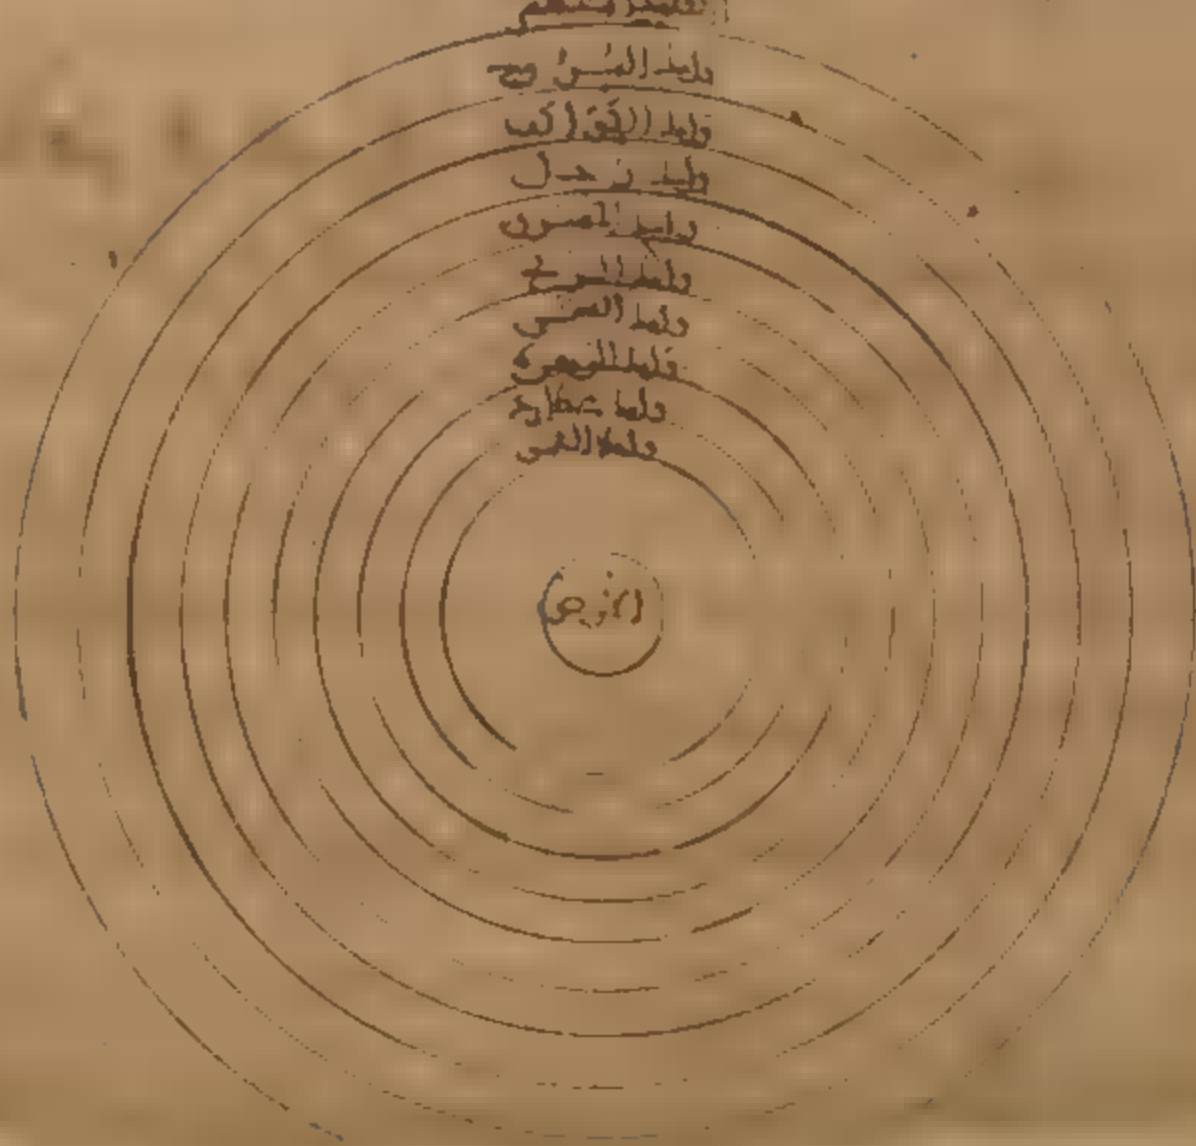 فلك البروج
فلك الكواكب
فلك زحل
فلك المشتري
فلك المريخ
فلك الشمس
فلك الزهرة
فلك عطارد
فلك القمر
الارض